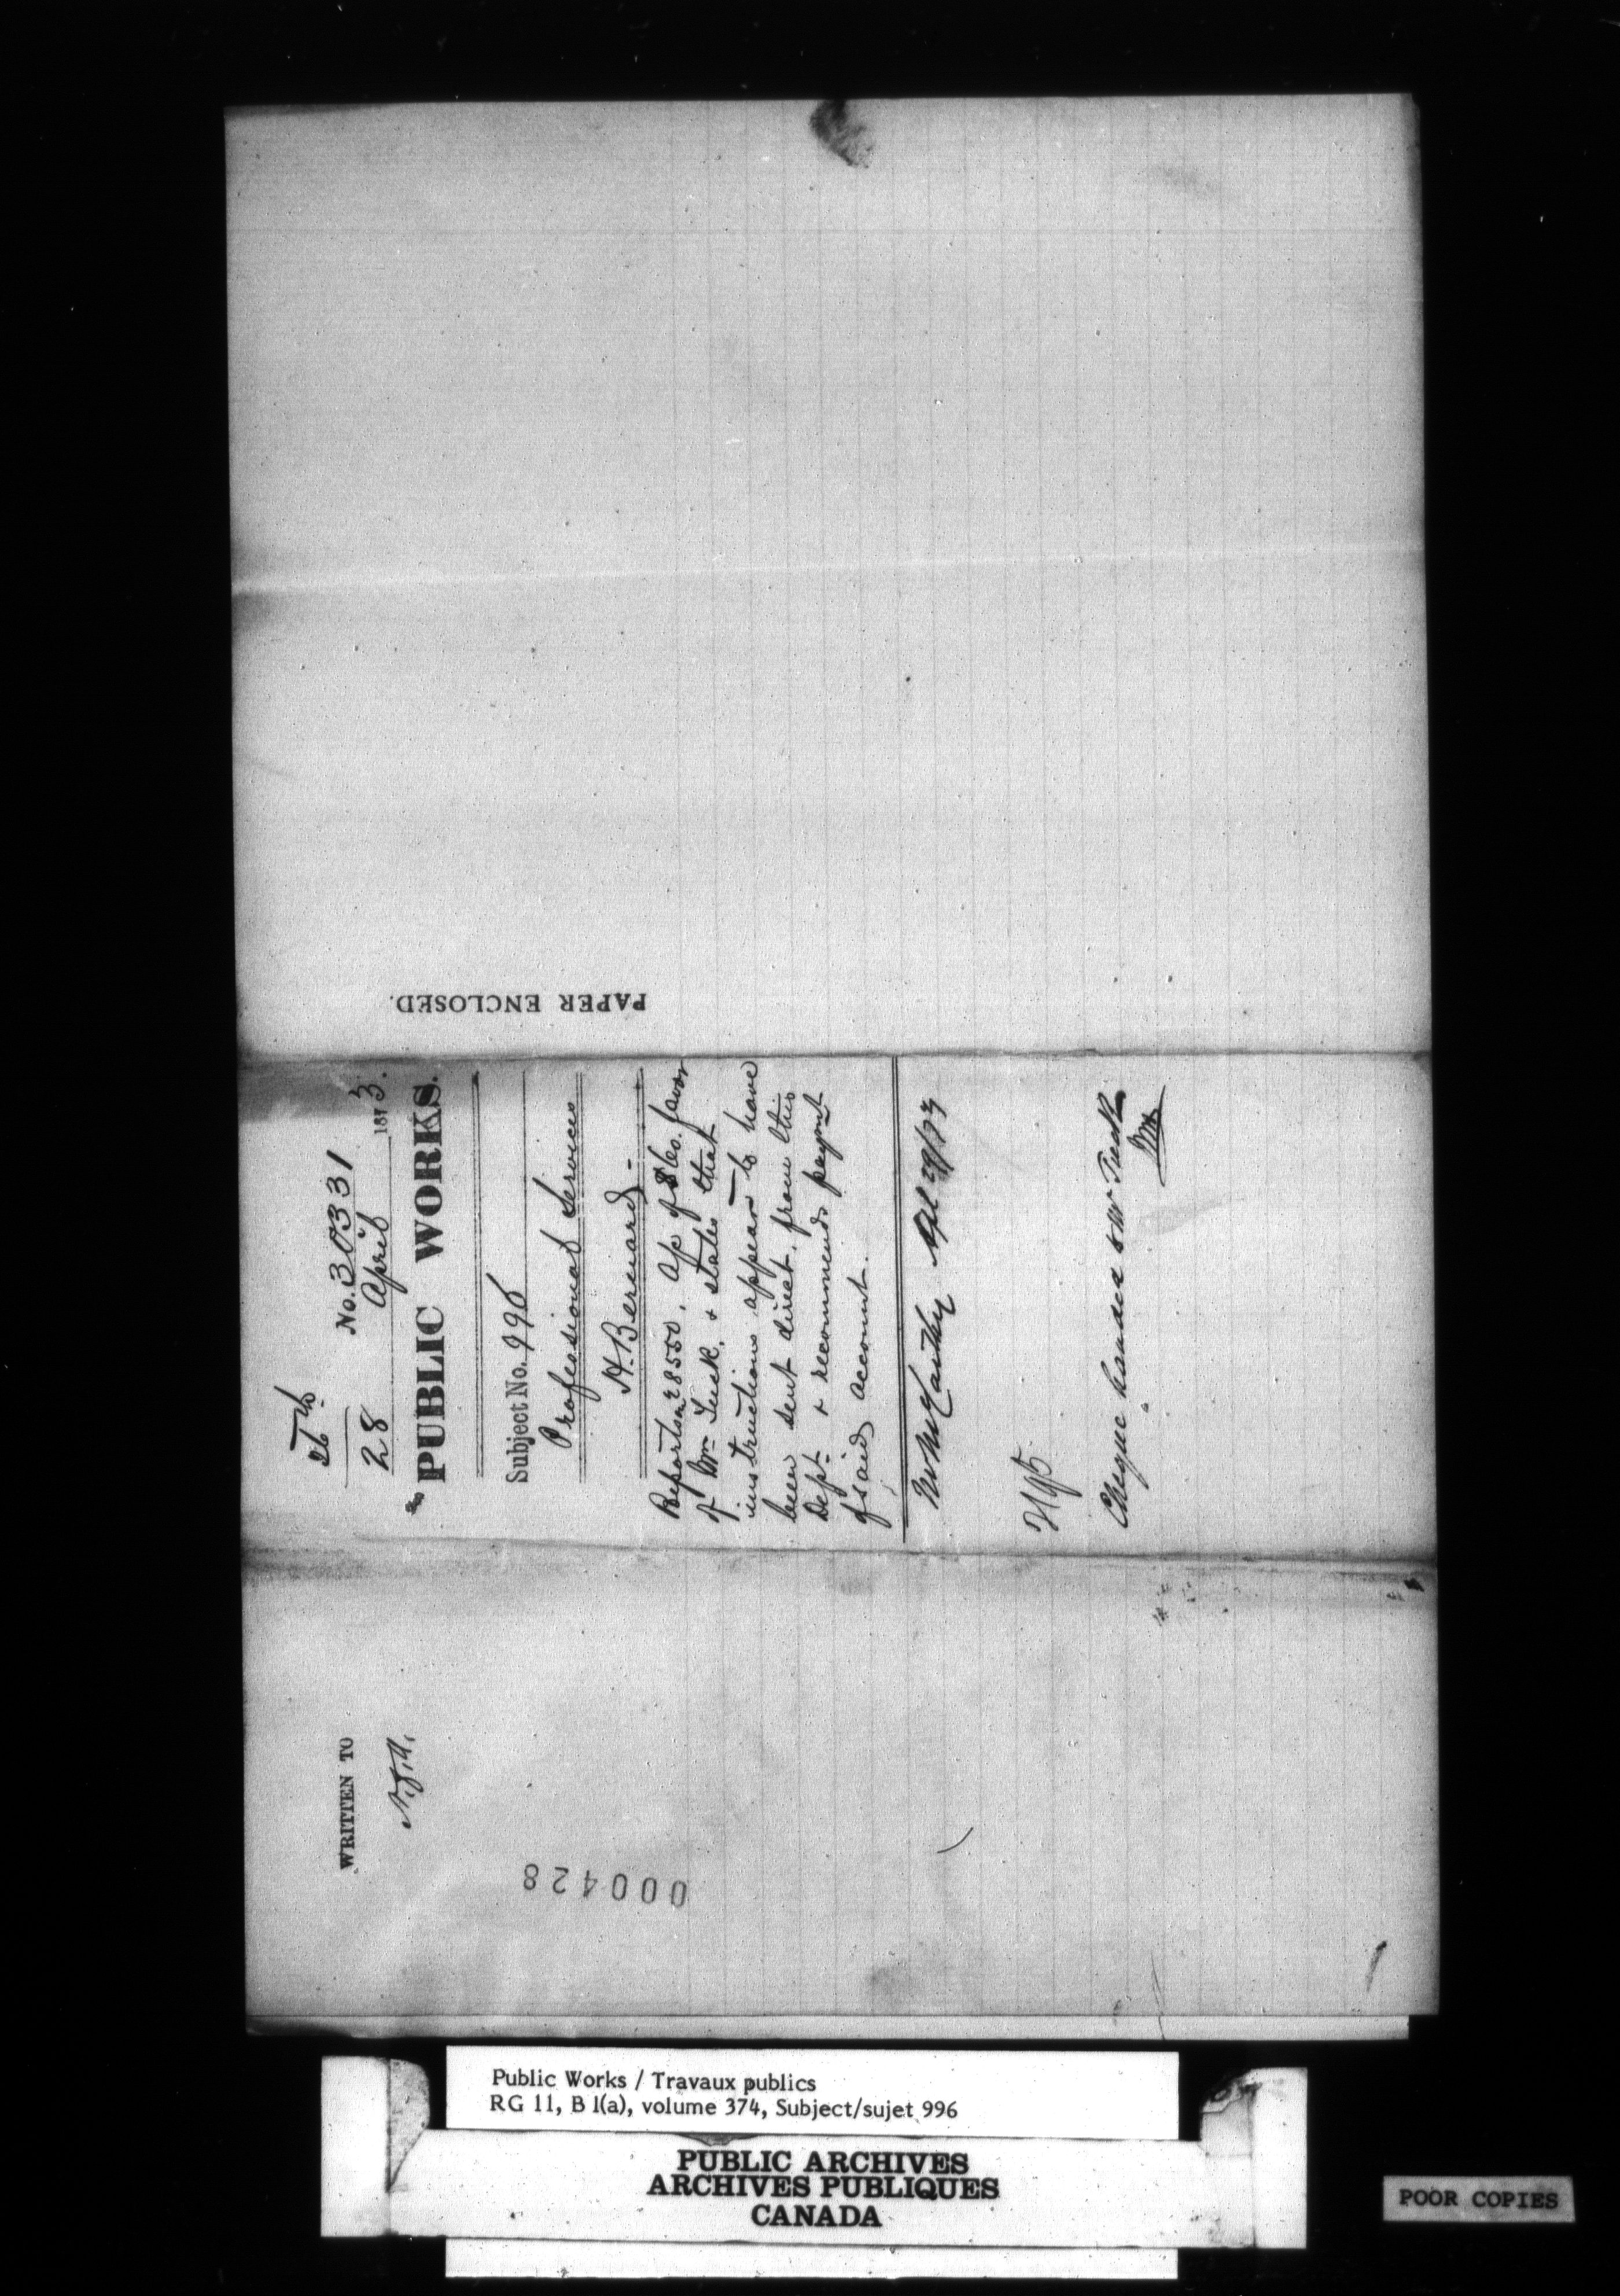 PAPER ENCLOSED.
26th
No. 30331
28 April 1873.
PUBLIC WORKS.
Subject No. 996
Professional Services
H. Bernard -
Reports on 28550. a/c of $60. favor
of Wm Tuck. & states that
instructions appear to have
been sent direct from this
Dept. & recommends paymt
of said account.
Apl 29/73
Cheque handed to Mr Tuck
WRITTEN TO
000428
Public Works / Travaux publics
RG 11, B 1(a), volume 374, Subject/sujet 996
PUBLIC ARCHIVES
ARCHIVES PUBLIQUES
CANADA
POOR COPIES